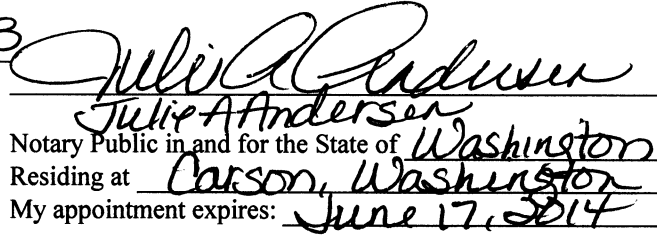 3
Julie A Andersen
Julie A Andersen
Notary Public in and for the State of Washington
Residing at Carson, Washington
My appointment expires: June 17, 2014